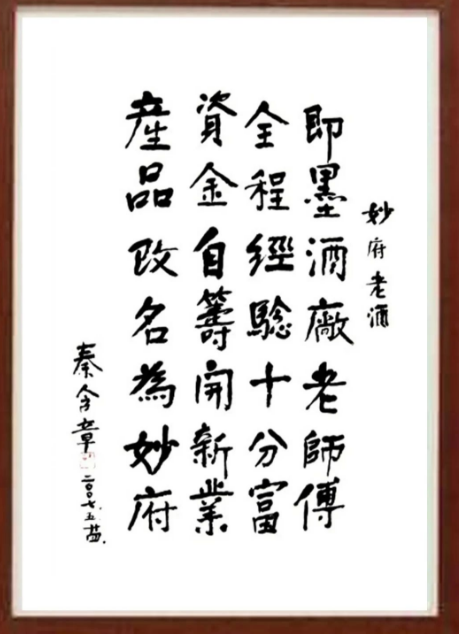 妙府老酒
即墨酒廠老師傅
全程經驗十分富
資金自籌開新業
產品改名為妙府
秦含章
二〇〇七.五.